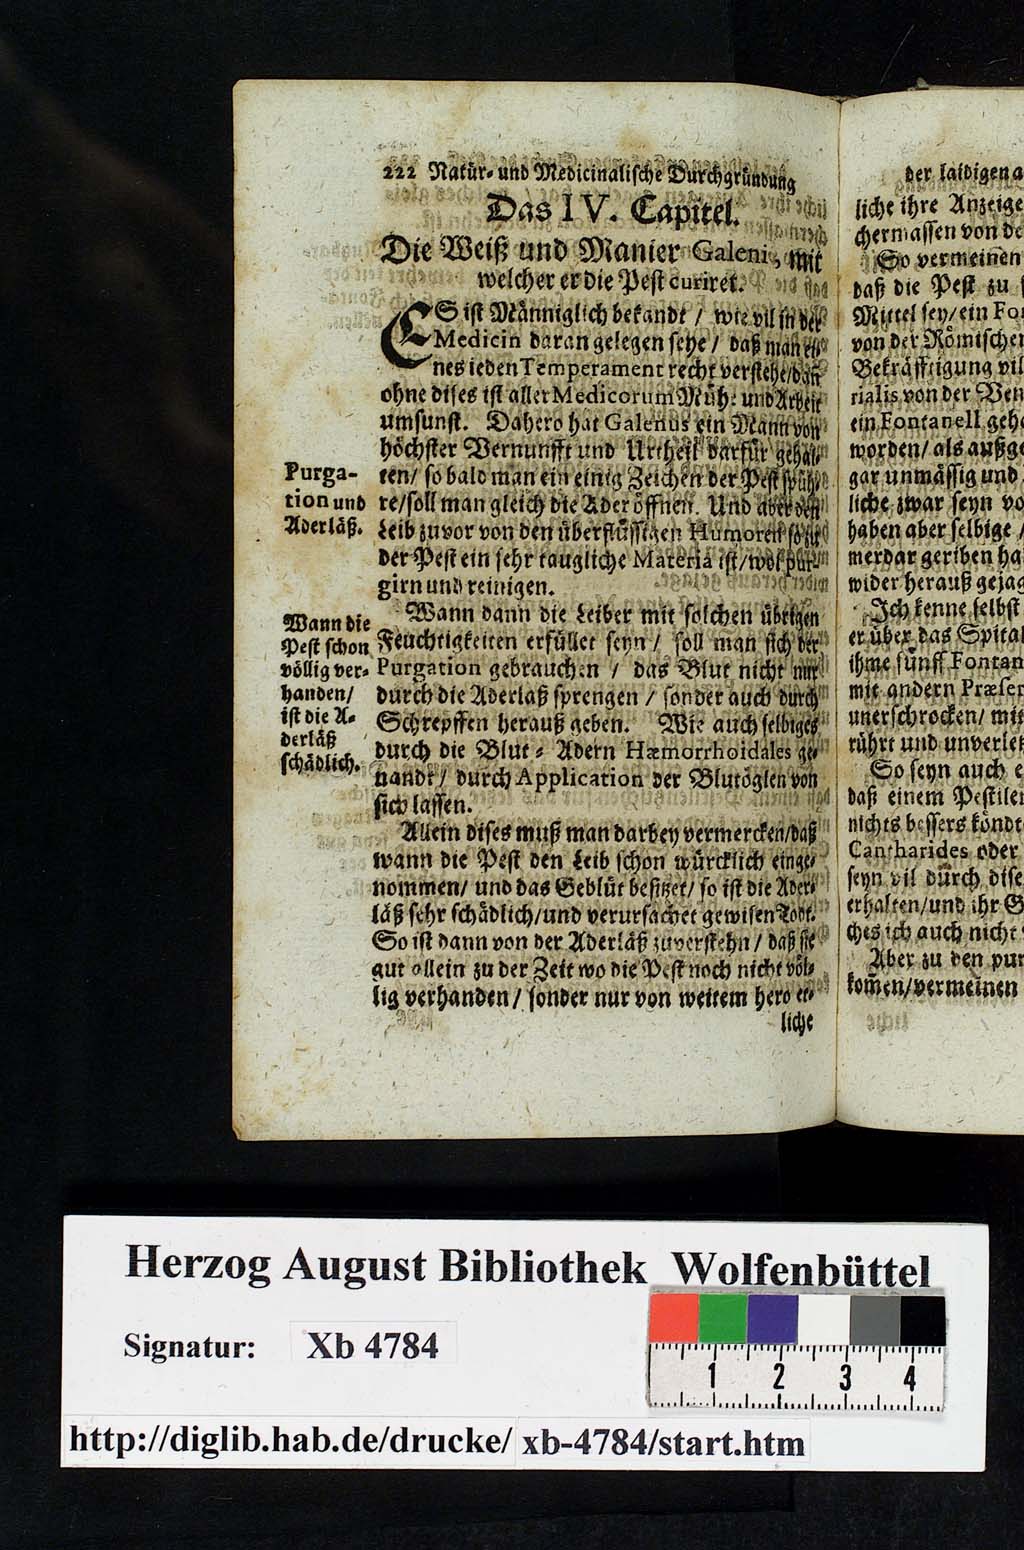 222 Natür- und Medicinalische Durchgründung
Das IV. Capitel.
Die Weiß und Manier Galeni, mit
welcher er die Pest curiret.
ES ist Männiglich bekandt / wie vil in der
Medicin daran gelegen seye / daß man ei-
nes ieden Temperament recht verstehe/dañ
ohne dises ist aller Medicorum Mühe und Arbeit
umsunst. Dahero hat Galenus ein Mann von
höchster Vernunfft und Urtheil darfür gehal-
ten/ so bald man ein einig Zeichen der Pest spüh-
re/soll man gleich die Ader öffnen. Und aber den
Leib zuvor von den überflüssigen Humoren so zu
der Pest ein sehr taugliche Materia ist/wol pur-
girn und reinigen.
Purga-
tion und
Aderläß.
Wann dann die Leiber mit solchen übrigen
Feuchtigkeiten erfüllet seyn / soll man sich der
Purgation gebrauchen / das Blut nicht nur
durch die Aderlaß sprengen / sonder auch durch
Schrepffen herauß geben. Wie auch selbiges
durch die Blut- Adern Hæmorrhoidales ge-
nandt / durch Application der Blutöglen von
sich lassen.
Wann die
Pest schon
völlig ver-
handen/
ist die A-
derläß
schädlich.
Allein dises muß man darbey vermercken/daß
wann die Pest den Leib schon würcklich einge-
nommen/ und das Geblüt besitzet/ so ist die Ader-
läß sehr schädlich/und verursachet gewisen Todt.
So ist dann von der Aderläß zuverstehn / daß sie
gut allein zu der Zeit wo die Pest noch nicht völ-
lig verhanden/ sonder nur von weitem hero et-
liche
der laidigen
liche ihre Anzeige
chermassen von
So vermeinen
daß die Pest zu
Mittel sey/ein
von der Römischen
Bekräfftigung vil
rialis von der
ein Fontanell
worden/ als
gar unmässig und
liche zwar seyn
haben aber selbige /
merdar geriben
wider herauß
Ich kenne selbst
er über das Spital
ihme fünff
mit andern
unerschrocken/ mit
rührt und
So seyn auch
daß einem
nichts bessers
Cantharides oder
seyn vil durch dise
erhalten/und ihr
ches ich auch nicht
Aber zu den
kom̃en/vermeinen
Herzog August Bibliothek Wolfenbüttel
Signatur: Xb 4784
1 2 3 4
http://diglib.hab.de/drucke/ xb-4784/start.htm